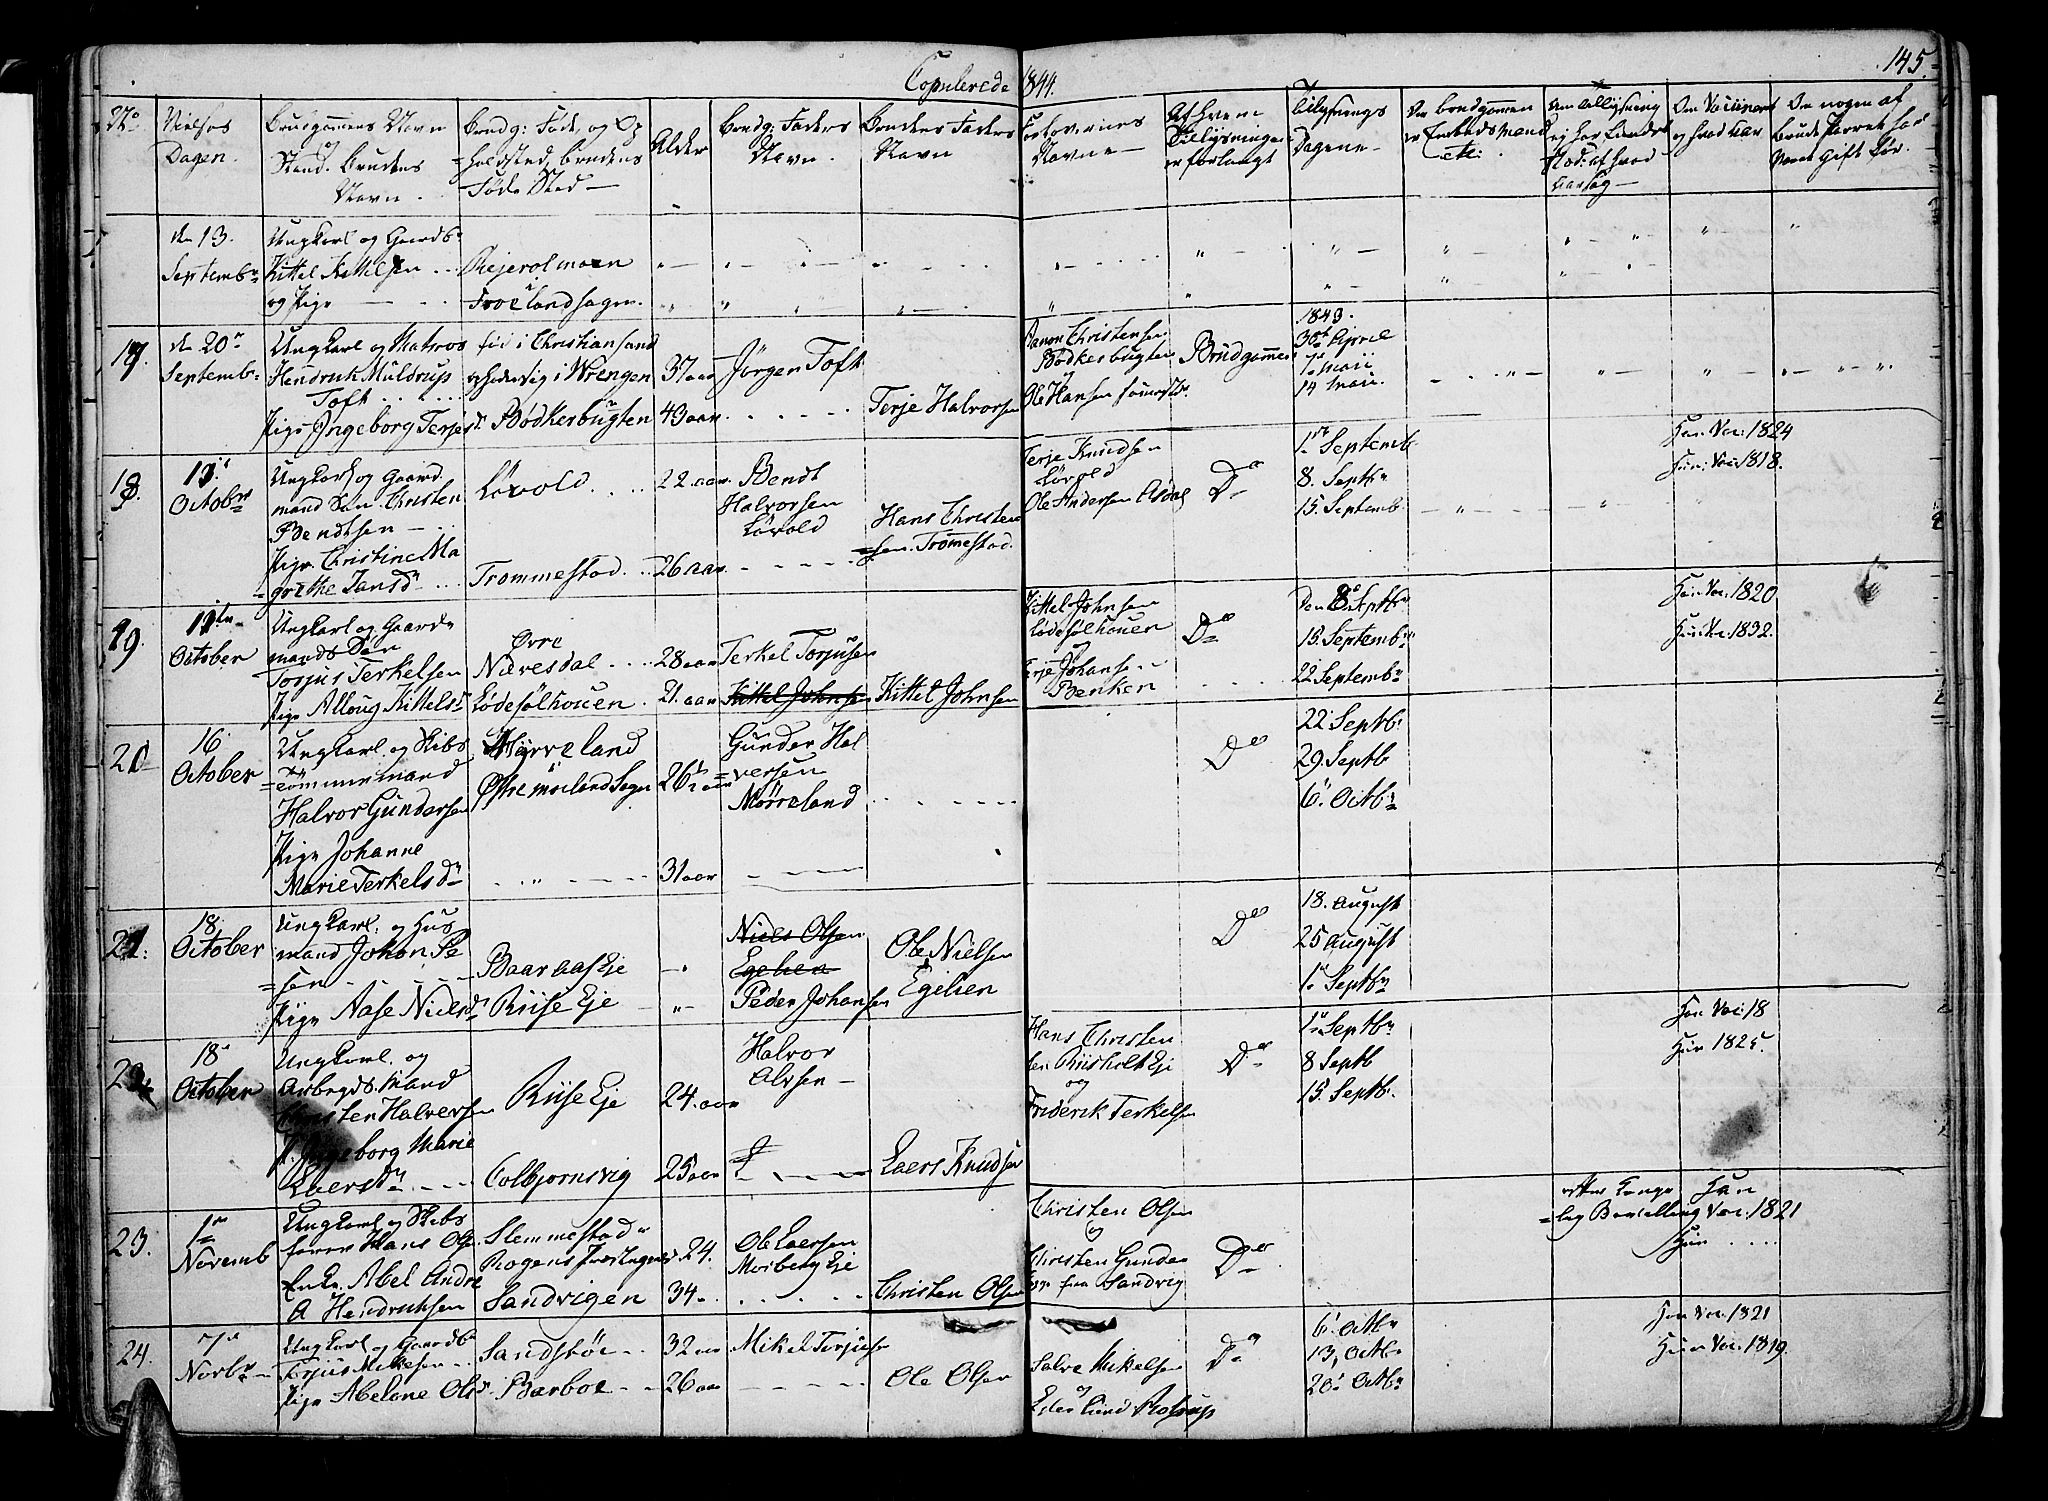 Copulerede 1844.
145.
No
Vielses Dagen.
Brudgommens Navn og Stand. Brudens Navn.
Brudg: Føde, og Op=holdsted, brudens Føde Sted —
Alder
Brudg: Faders Navn.
Brudens Faders Navn
Forlovernes Navne —
Af hvem Tillysningen er forlangt
Tillysnings Dagene —
Om brudgommen er Embedsmand etc:
Om Vaccineret og hvad Aar
Om nogen af Brude Parret har været gift før.
den 13. Septembr
Ungkarl og Gaardbr Kittel Kittelsen
og Pige —
Froelandsogn.
17.
den 20de Septembr
Ungkarl og Matros Hendrick Müldrup Toft
Pige Ingeborg Terjesdr
fød i Christiansand
opholdende sig i Wrengen
Bødkerbugten
37 aar
43 aar
Jørgen Toft
Terje Halvorsen
Christensen Bødkerbugten
og Ole Hansen
Brudgommen
1843.
30te April
7de Maii
14 Maii.
18.
11te Octobr
Ungkarl og Gaardmand Søn Christen Bendtsen —
Pige Christine Magrethe Hansdr
Løvold
Trommestad
22 aar
26 aar
Bendt Halvorsen Løvold
Hans Christen=sen Tromestad.
Terje Knudsen Løvold
Ole Andersen Asdal
Do
1te Septemb.
8. Septbr
15. Septemb.
Han: Vac: 1824
Hun: Vac: 1818.
19.
11te October
Ungkarl og Gaardmands Søn Torjus Terkelsen
Pige Alloug Kittelsdr
Øvre Nævesdal
Lødesølhouen
28 aar
21 aar
Terkel Torjusen
Kittel Johnsen
Kittel Johnsen
Kittel Johnsen Lødesølhouen
Terje Johansen Benken
Do
Den 8de Septbr
15. Septembr
22 Septembr
Han Vac: 1820
Hun Vac: 1832.
20
16 October
Ungkarl og Skibs=tømmermand Halvor Gundersen
Pige Johanne Marie Terkelsdr
Myrreland Østre Moeland Sogn
26½ aar
31 aar
Gunder Hal=versen Mørreland
Do
22 Septb.
29. Septb
6te Octbr
21.
18. October
Ungkarl og Husmand Johan Pe=sen
Pige Aase Nielsdr
Baaraas Eje
Riise Eje
Niels Olsen Egelien
Peder Johansen
Ole Nielsen Egelien
Do
18. August
25 August
1te Septbr
22
18de October
Ungkarl og Arbeydsmand Christen Halversen
P. Ingeborg Marie Laersdr
Riise Eje
Colbjornsvig
24. aar
25 aar
Halvor Olsen —
Laers Knudsen
Hans Christensen Riisholt Eje
og Friderik Terkelsen
Do
1te Septbr
8 Septb
15. Septb.
Han Vac: 18
Hun 1825.
23.
1te Novemb
Ungkarl og Skibsfører Hans Olsen
Enke Abel Andrea Hendriksen
Slemmestad
Sandvigen
24.
34
Ole Laersen Morberg Eje
Christen Olsen
Christen Olsen
og Christen Gundersen fra Sandvig
Do
efter Konge=lig Bevilling
Han Vac: 1821
Hun
24.
7de Novbr
Ungkarl og Gaardbr Terjus Mikelsen
Pige Abelone Olsdr
Sandstøe
Barboe
32 aar
26 aar
Mikel Terjusen
Ole Olsen
Salve Mikelsen
og
Do
6te Octbr
13, Octbr
20de Octbr
Han Vac: 1821
Hun Vac: 1819.